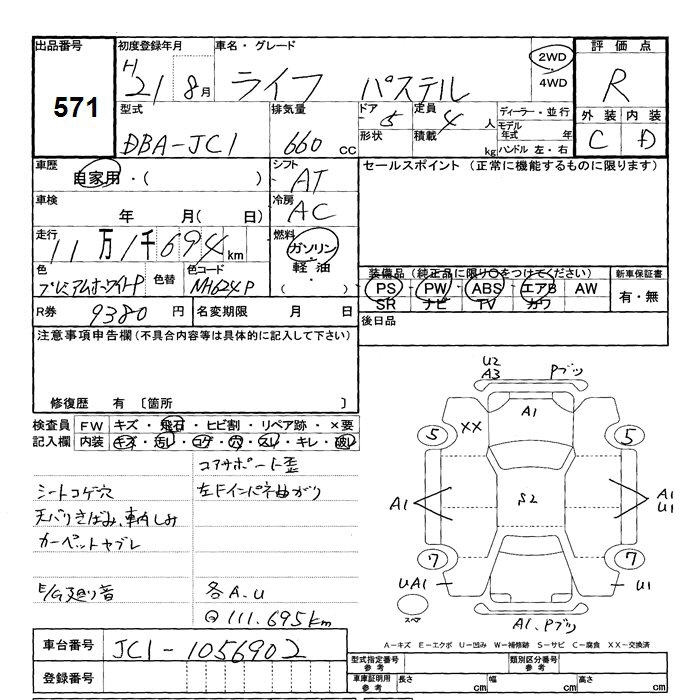 出品番号 初度登録年月 車名・グレード 評価点
571 H21 8月 ライフ パステル 2WD 4WD R
型式 排気量 ドア 定員 ディーラー・並行 外装 内装
DBA-JC1 660 CC 5 4人 モデル年式 年 C D
形状 積載 kg ハンドル 左・右
車歴 自家用・( ) シフト AT セールスポイント (正常に機能するものに限ります)
車検 年 月( 日) 冷房 AC
走行 11万1千694km 燃料 ガソリン
軽油
( )
色 プレミアムホワイトP 色替 色コード NH624P
装備品 (純正品に限り○をつけてください) 新車保証書
PS PW ABS エアB AW 有・無
SR ナビ TV カワ
R券 9380円 名変期限 月 日 後日品
注意事項申告欄(不具合内容等は具体的に記入して下さい)
修復歴 有 〔箇所 〕
検査員 FW キズ・飛石・ヒビ割・リペア跡・×要
記入欄 内装 キズ・汚レ・コゲ・穴・スレ・キレ・破レ
コアサポート歪
シートコゲ穴 左Fインパネ曲がり
天バリきばみ、車内しみ
カーペットヤブレ
E/G廻り音 各A.U
◎111.695km
U2
A3 Pブツ
A1
5 XX 5
A1 S2 A1
U1
7 7
UA1 U1
スペア A1.Pブツ
A-キズ E-エクボ U-凹み W-補修跡 S-サビ C-腐食 XX-交換済
車台番号 JC1-1056902
登録番号
型式指定番号 参考 類別区分番号 参考
車庫証明用 参考 長さ cm 幅 cm 高さ cm